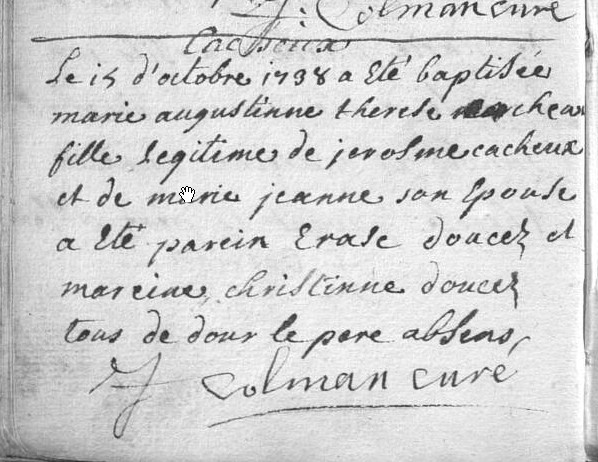 f: Colman curé
Cacheux
Le 15 d'octobre 1738 a eté baptisée
marie augustinne therese
fille legitime de jerosme cacheux
et de marie jeanne son epouse
a eté parein Erasc doucez et
mareine christinne doucez
tous de dour le pere absens
f colman curé